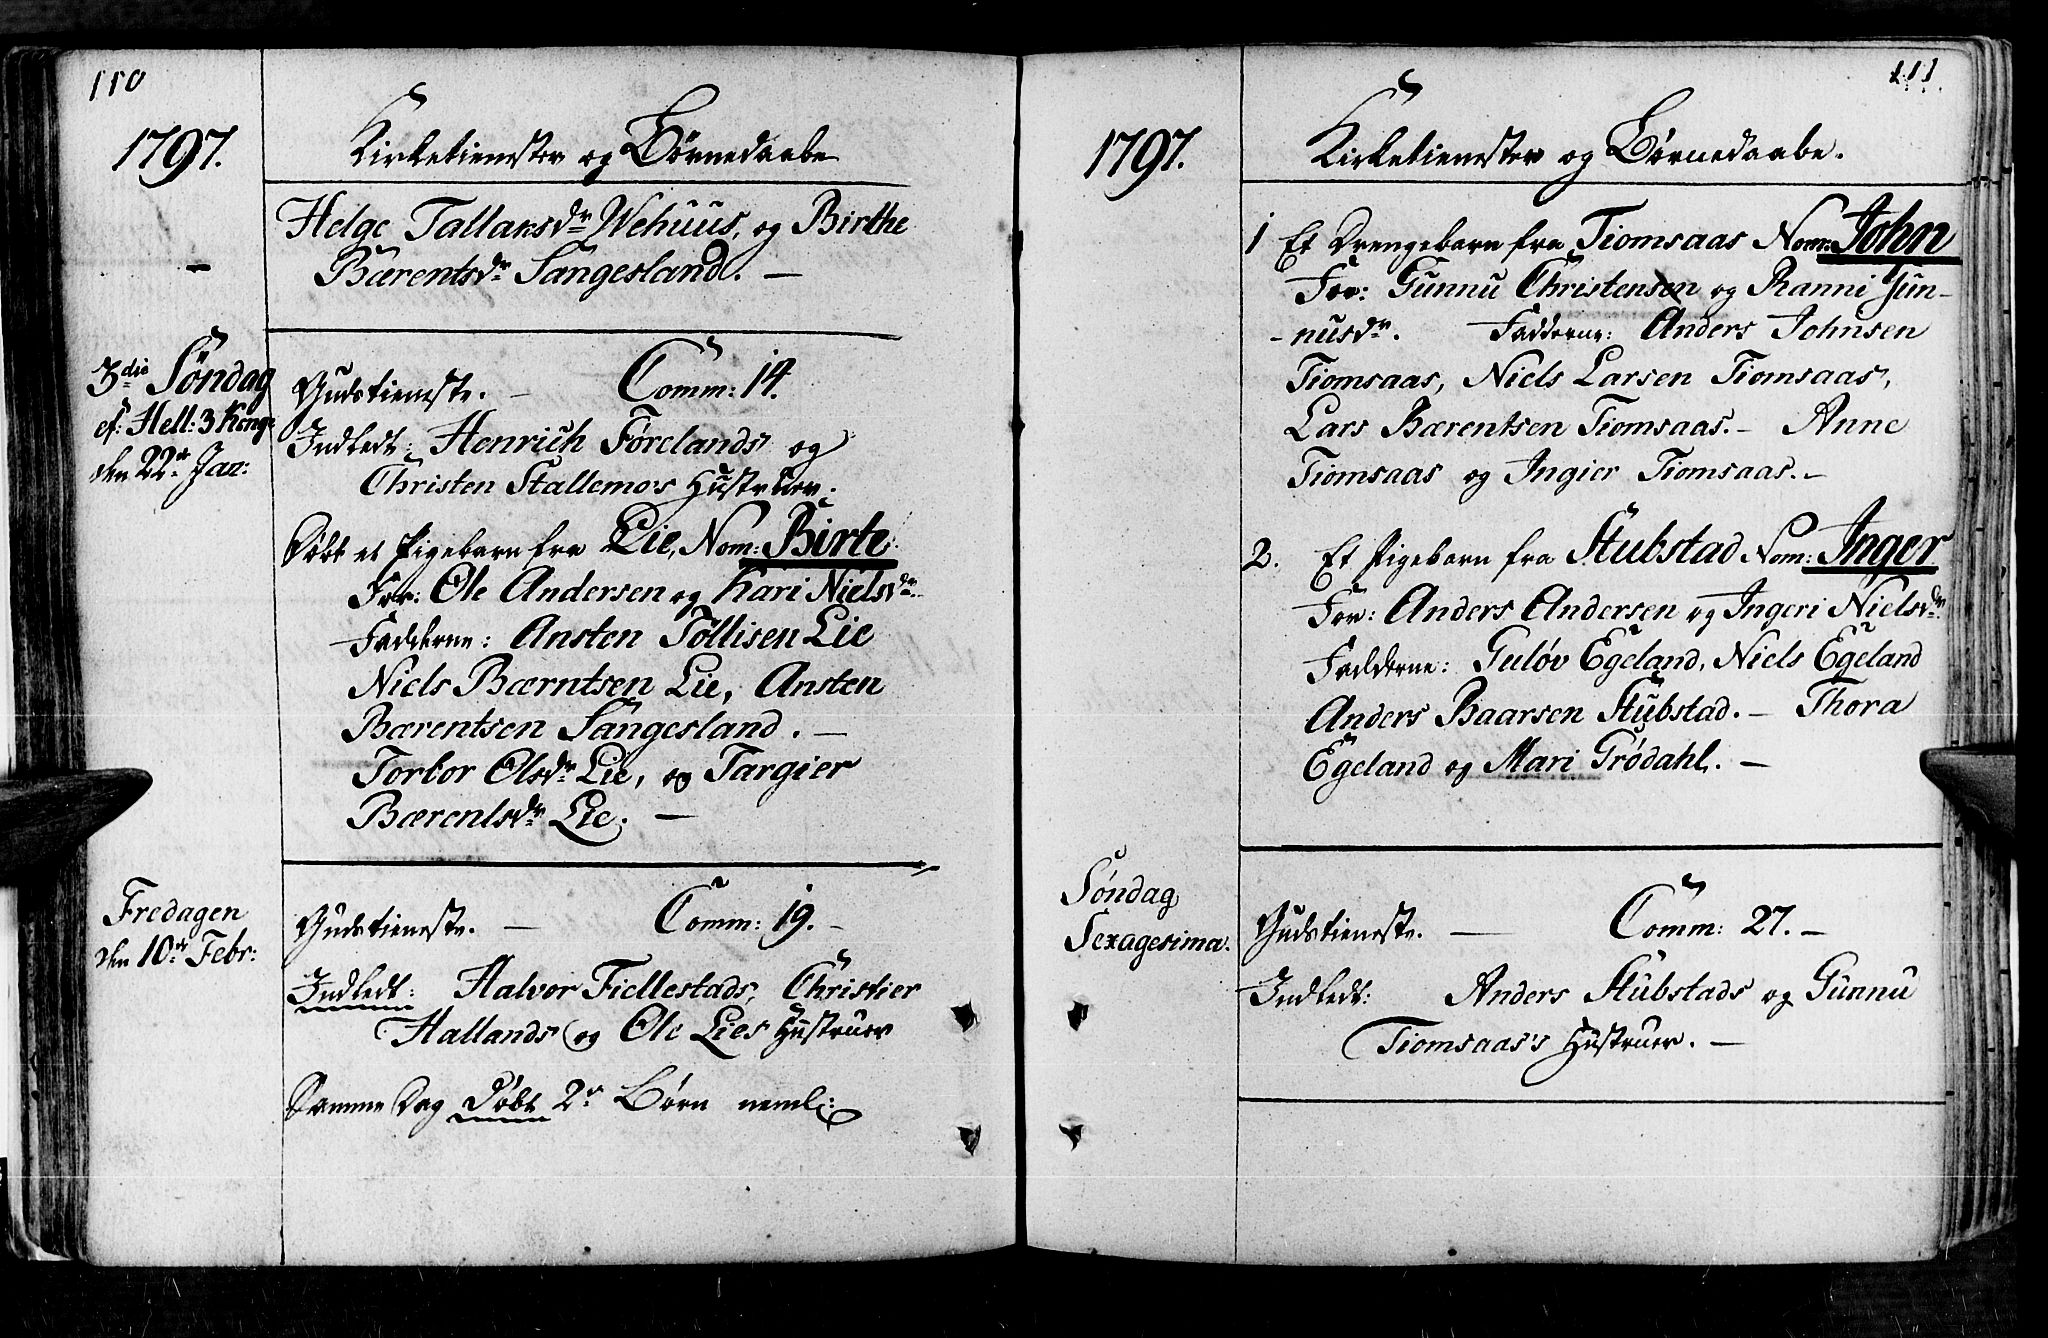 110
1797.
Kirketienester og Børnedaabe
Helge Tallaksdr Wehuus, og Birthe
Bærentsdr Sangesland. —
3die Søndag
ef: Hell: 3 Kong:
den 22de Jan:
Gudstieneste. — Comm: 14.
Indledt: Henrich Førelands og
Christen Stallemos Hustruer.
Døbt et Pigebarn fra Lie, Nom: Birte.
For: Ole Andersen og Kari Nielsdr.
Fadderne: Ansten Tollisen Lie
Niels Bærntsen Lie, Ansten
Bærentsen Sangesland. —
Torbor Olsdr Lie, og Targier
Bærentsdr Lie. —
Fredagen
den 10de Febr:
Gudstieneste. — Comm: 19. –
Indledt: Halvor Fiellestads, Christier
Hallands og Ole Lies Hustruer
Samme Dag Døbt 2de Børn nemli:
111.
1797.
Kirketienester og Børnedaabe.
1 Et Drengebarn fra Tiomsaas Nom: John
For: Gunnu Christensen og Ranni Gun-
-nusdr. Fadderne: Anders Johnsen
Tiomsaas, Niels Larsen Tiomsaas,
Lars Bærentsen Tiomsaas. – Anne
Tiomsaas og Ingier Tiomsaas. –
2. Et Pigebarn fra Stubstad Nom: Inger
For: Anders Andersen og Ingeri Nielsdr.
Fadderne: Guløv Egeland, Niels Egeland
Anders Baarsen Stubstad. – Thora
Egeland og Mari Grødahl. —
Søndag
Sexagesima.
Gudstieneste. — Comm: 27. –
Indledt: Anders Stubstads og Gunnu
Tiomsaas's Hustruer. —